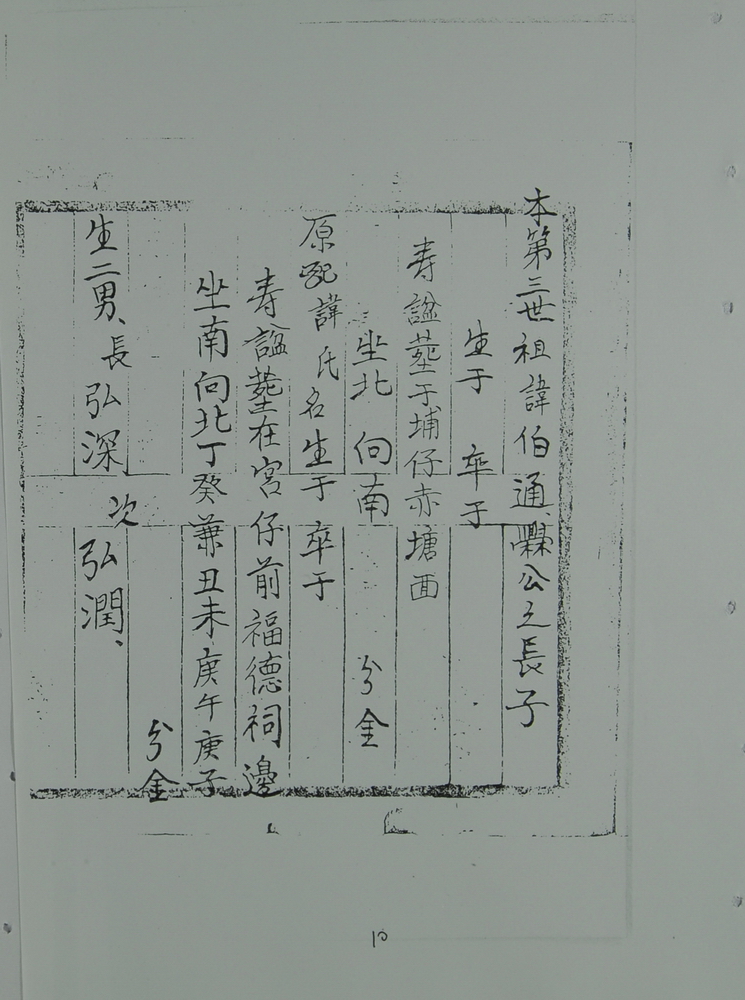 本第三世祖諱伯通、公之長子
生于 卒于
寿諡塟于埔仔赤塘面
坐北向南 兮金
原配諱氏名生于 卒于
寿諡塟在宮仔前福德祠邊
坐南向北丁癸兼丑未庚午庚子
兮金
生二男、長弘深 次弘潤、
10